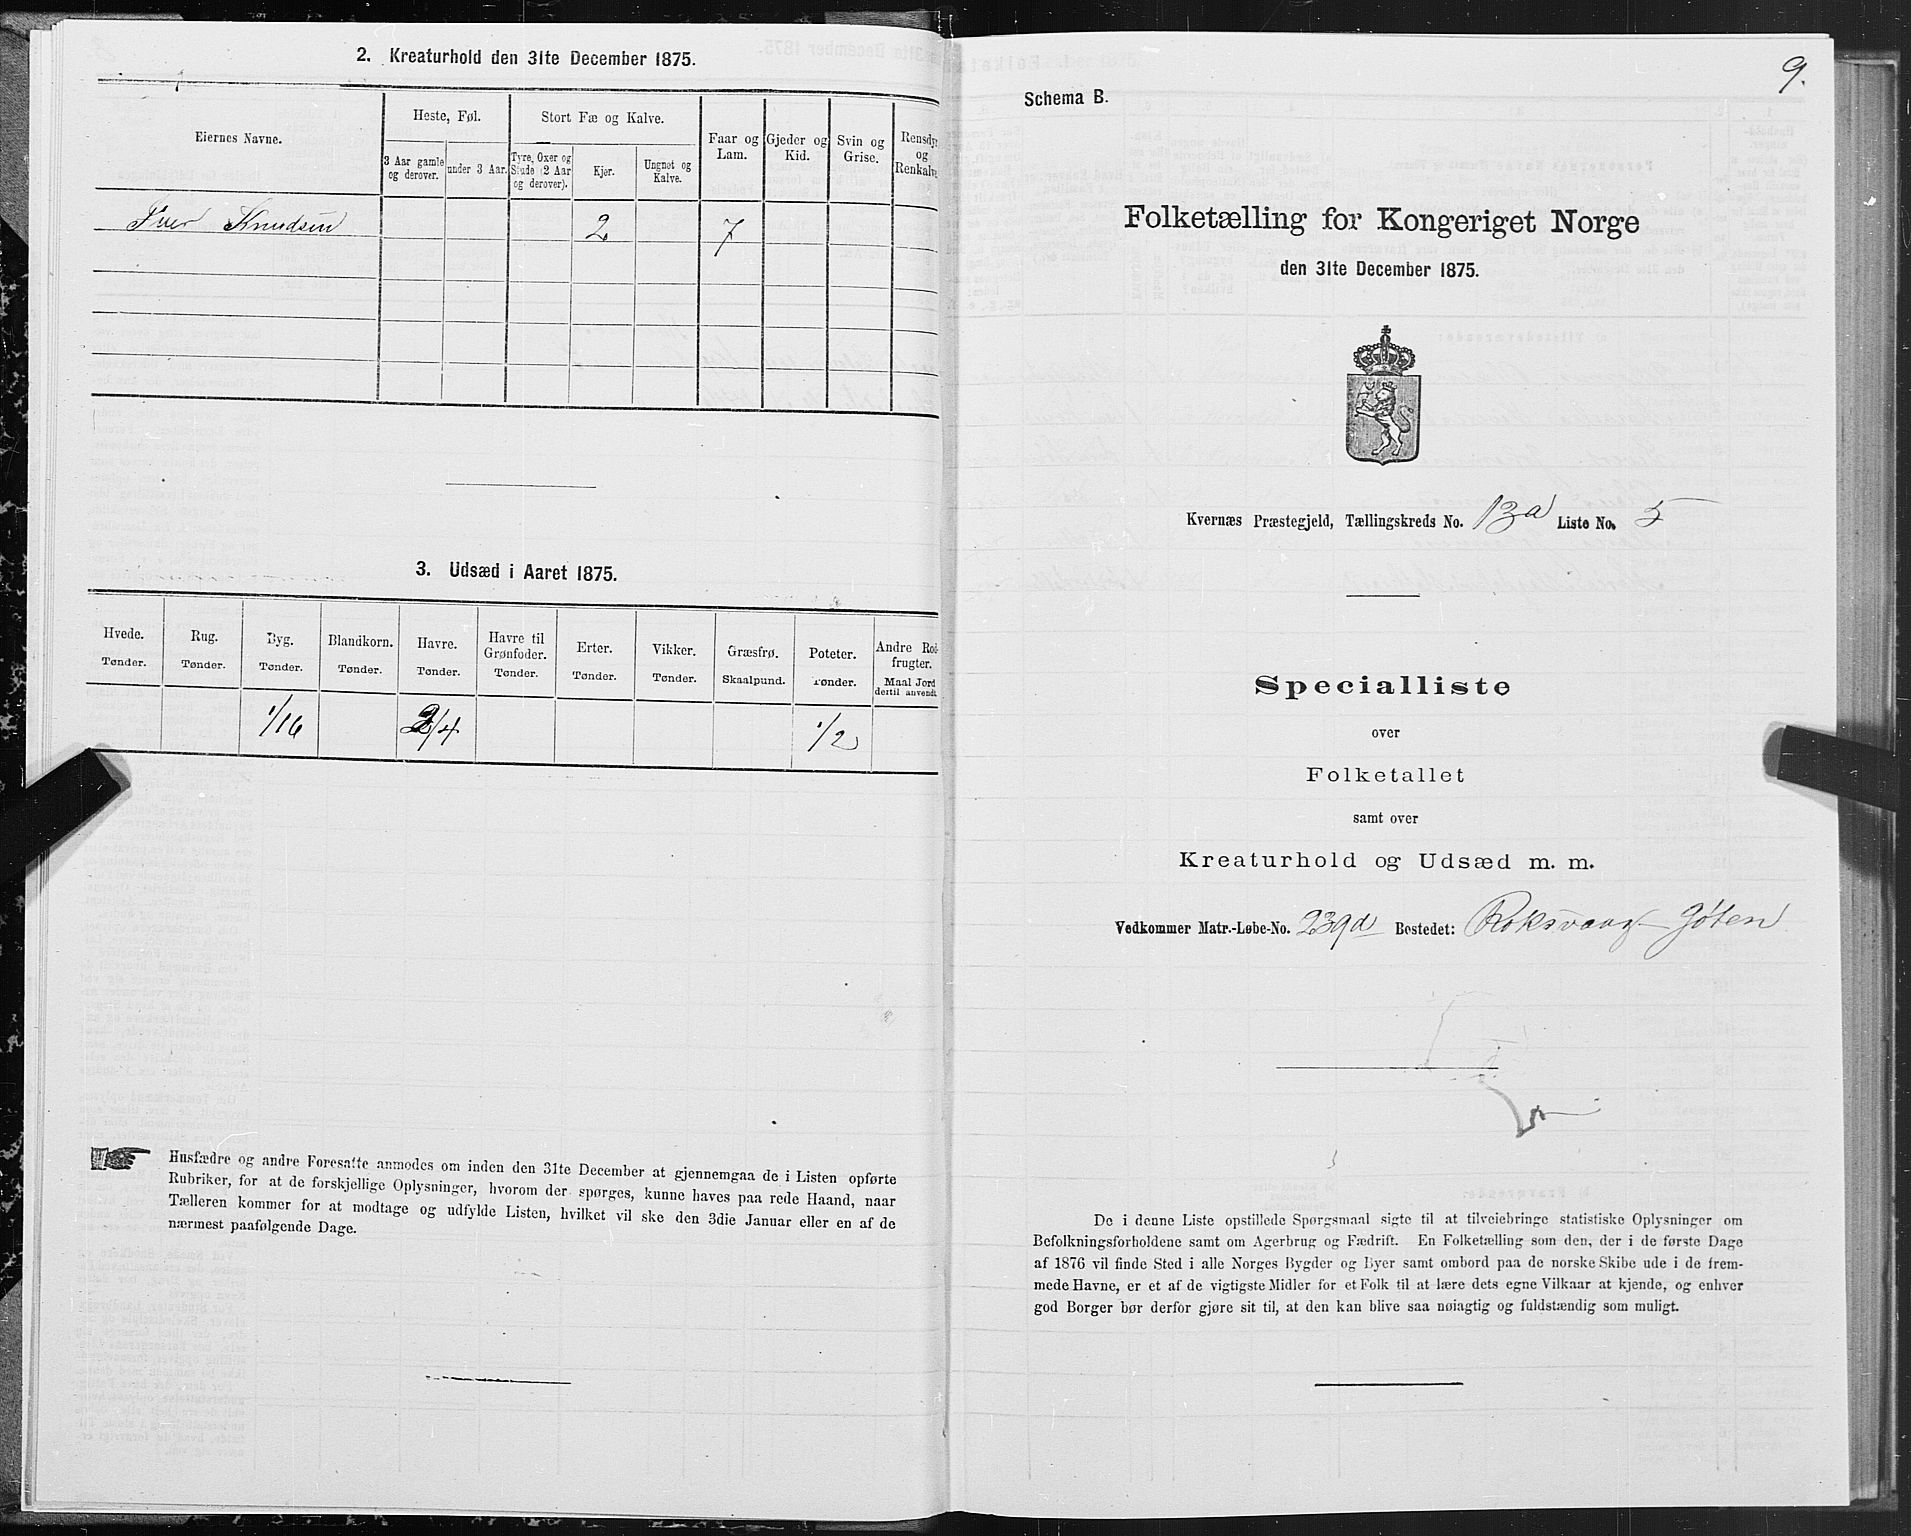 2. Kreaturhold den 31te December 1875.
Eiernes Navne.
Heste, Føl.
Stort Fæ og Kalve.
Faar og Lam.
Gjeder og Kid.
Svin og Grise.
Rensdyr og Renkalve
3 Aar gamle og derover.
under 3 Aar.
Tyre, Oxer og Stude (2 Aar og derover).
Kjer.
Ungnøt og Kalve.
Iver Knudsen 2 7
3. Udsæd i Aaret 1875.
Hvede. Tønder.
Rug. Tønder.
Byg. Tønder.
Blandkorn. Tønder.
Havre. Tønder.
Havre til Grønfoder. Tønder.
Erter. Tønder.
Vikker. Tønder.
Græsfrø. Skaalpund.
Poteter. Tønder.
Andre Rodfrugter. Maal Jord dertil anvendt
1/16 3/4 1/2
Husfædre og andre Foresatte anmodes om inden den 31te December at gjennemgaa de i Listen opførte
Rubriker, for at de forskjellige Oplysninger, hvorom der spørges, kunne haves paa rede Haand, naar
Tælleren kommer for at modtage og udfylde Listen, hvilket vil ske den 3die Januar eller en af de
nærmest paafølgende Dage.
9.
Schema B.
Folketælling for Kongeriget Norge
den 31te December 1875.
Kvernæs Præstegjeld, Tællingskreds No. 13a Liste No. 5
Specialliste
over
Folketallet
samt over
Kreaturhold og Udsæd m. m.
Vedkommer Matr.-Løbe-No. 239d Bostedet: Roksvaag Jøten
De i denne Liste opstillede Spørgsmaal sigte til at tilveiebringe statistiske Oplysninger om
Befolkningsforholdene samt om Agerbrug og Fædrift. En Folketælling som den, der i de første Dage
af 1876 vil finde Sted i alle Norges Bygder og Byer samt ombord paa de norske Skibe ude i de frem-
mede Havne, er et af de vigtigste Midler for et Folk til at lære dets egne Vilkaar at kjende, og enhver
god Borger bør derfor gjøre sit til, at den kan blive saa nøiagtig og fuldstændig som muligt.